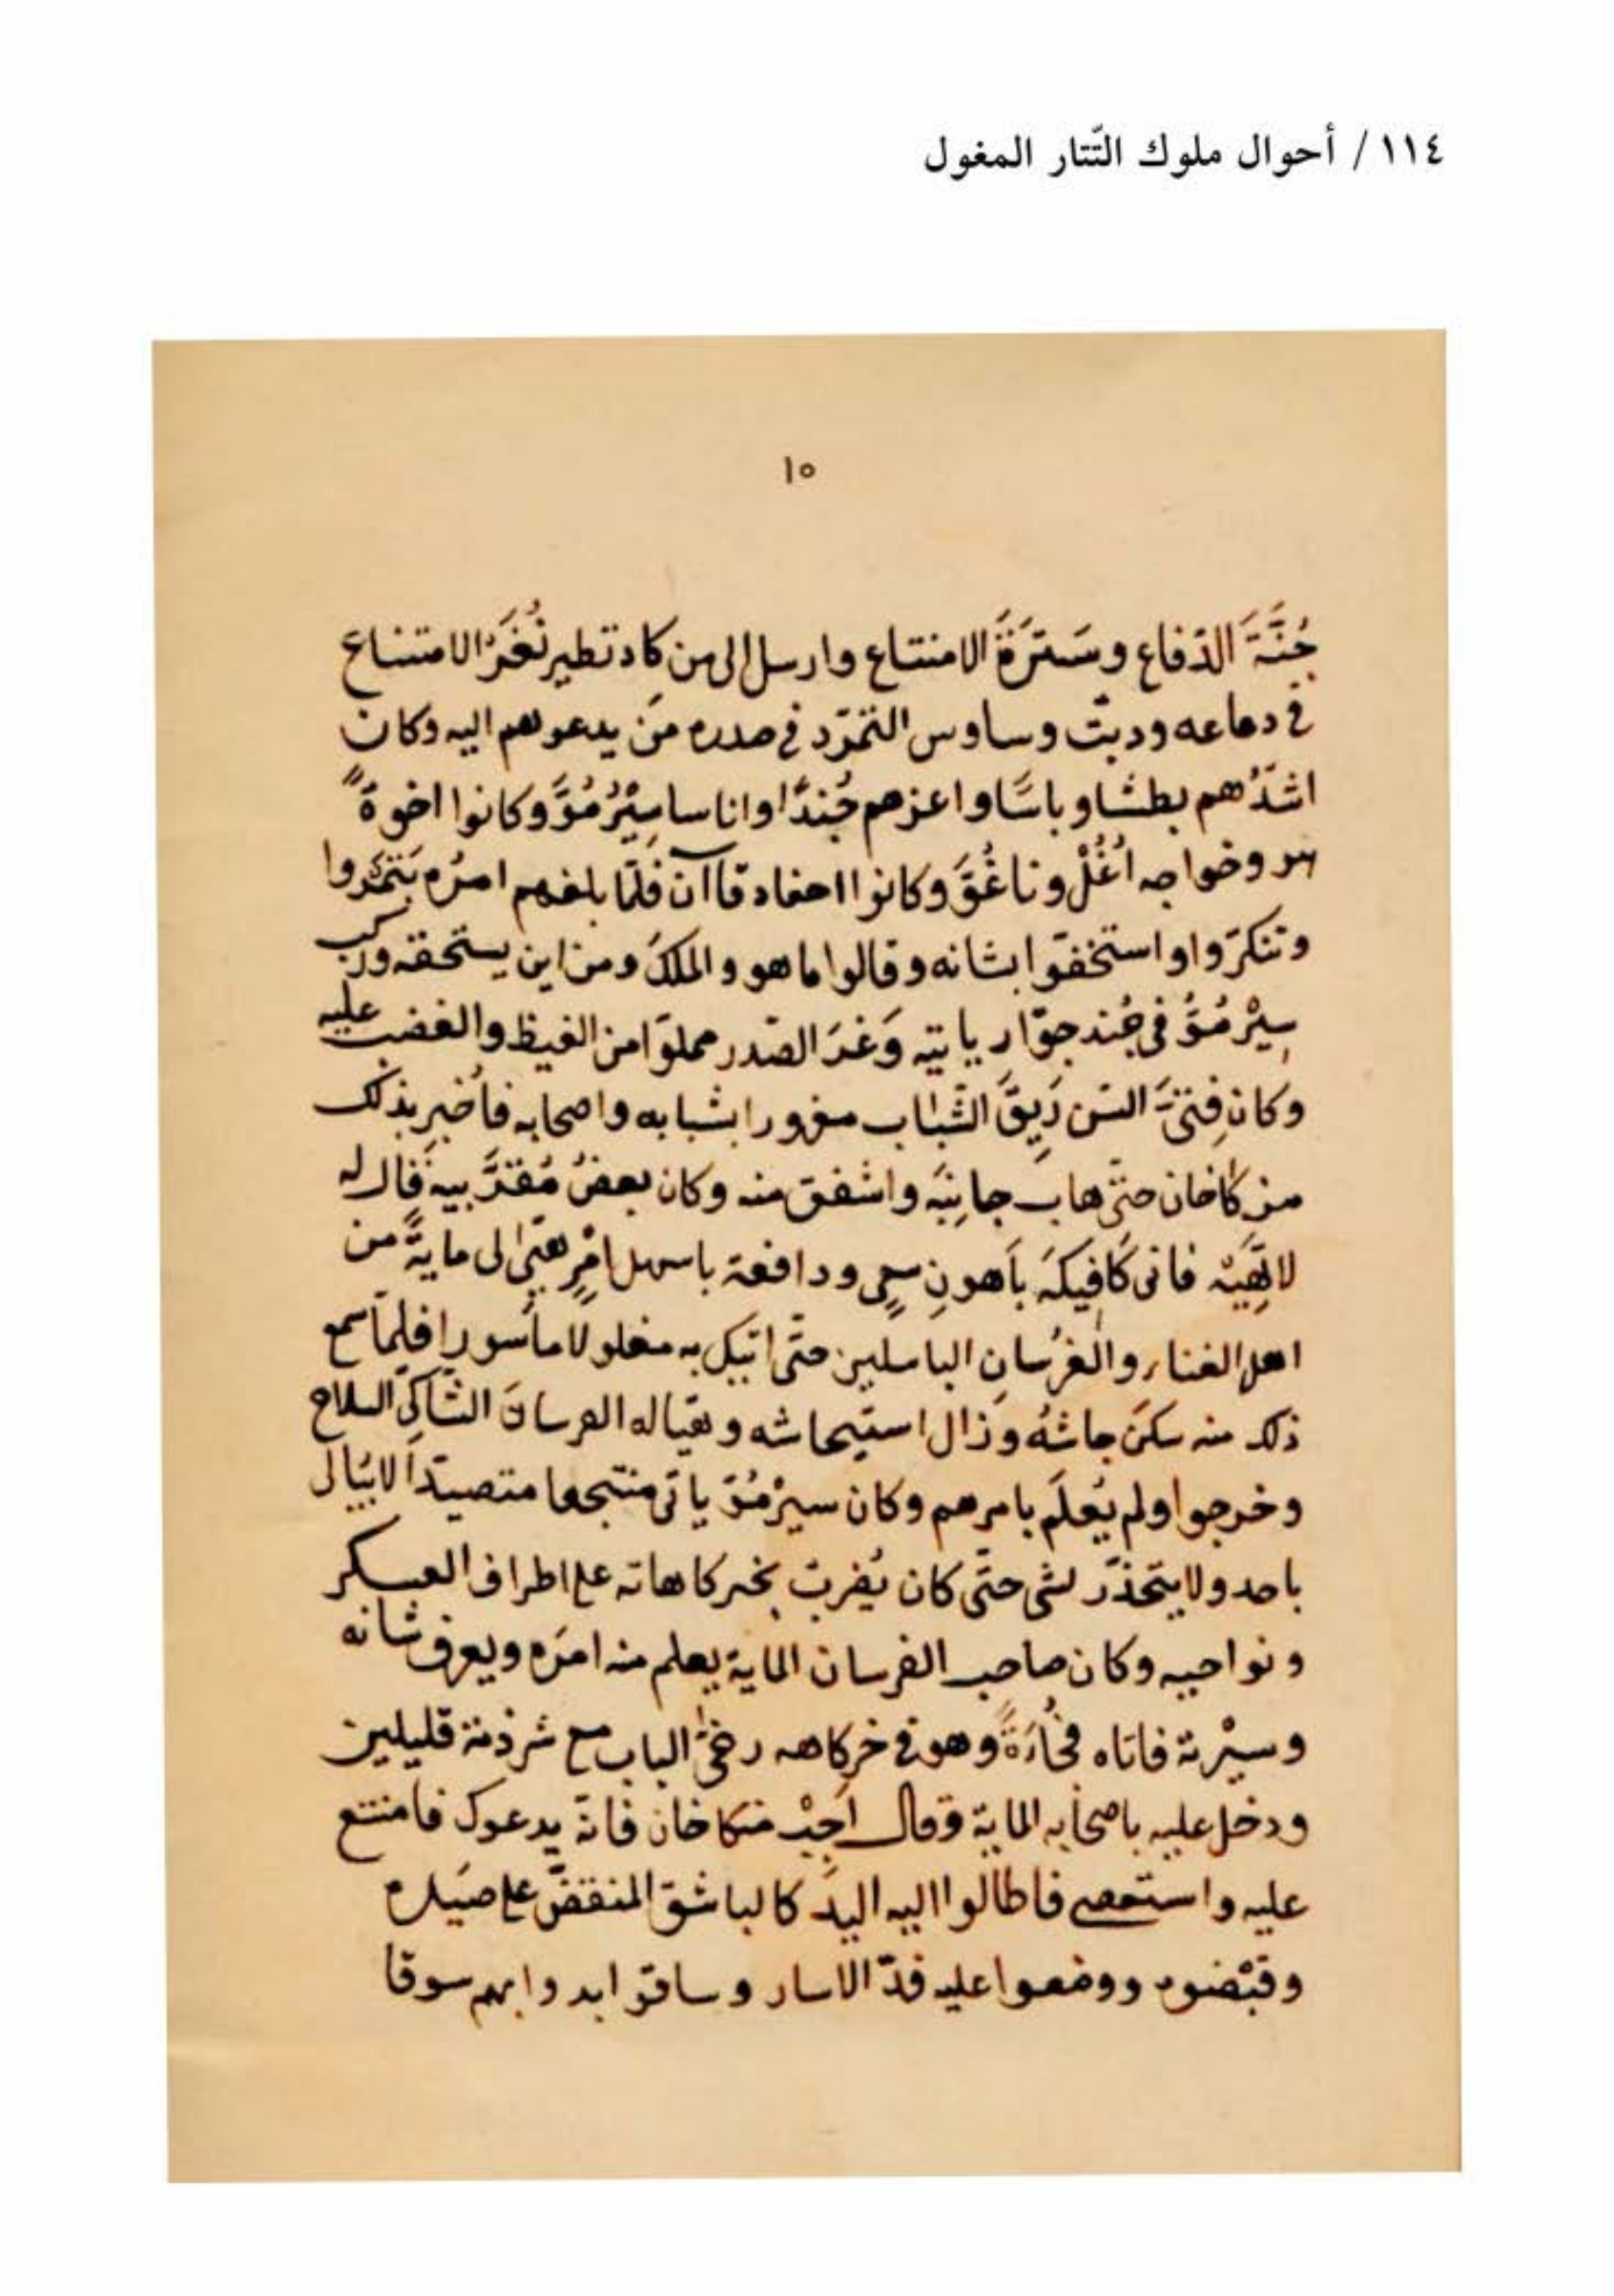 ١١٤ / أحوال ملوك التّتار المغول
١٥
جُنَّةَ الدّفاع وسَترَةَ الامتناع وارسل الى من كاد تطير نُغَرُ الامتناع
في دماعه ودبّت وساوس التمرّد في صدره مَن يدعوهم اليه وكان
اشدُّهم بطشا وباسًا واعزهم جُندًا واناسا سِيْرُمُوَّ وكانوا اخوةً
وخواجه اُغُلْ وناغُوَّ وكانوا احفاد قاآن فلمّا بلغهم امرُه تنمّروا
وتنكرّوا واستخفوّا بشانه وقالوا ما هو والملكَ ومن اين يستحقه وركب
سِيْرْمُوَّ في جُند جوّار ياتيه وَغرَ الصّدر مملوّا من الغيظ والغضب عليه
وكان فتىَّ السّن رَيِّقَ الشّباب مغرورا بشبابه واصحابه فاُخبر بذلك
منركاخان حتّى هاب جانِبَه واشفق منه وكان بعضُ مُقرَّبيه قال له
لا تَهَبْه فانى كافيكَه بأهونِ سعىٍ ودافعه باسهل امْرٍ هَبىْ لى مايةً من
اهل الغناء والفُرسان الباسلين حتّى اتيك به مغلولا مأسورا فلمّا سمع
ذلك منه سكن جاشُهُ وزال استيحاشه وهيا له الفرسان الشّاكى السلاح
وخرجوا ولم يُعلَم بامرهم وكان سيرْمُوّ ياتى منتجعا متصيّدًا لا يُبالى
باحد ولا يتحذّر لشى حتّى كان يُضربُ بخركاهاته على اطراف العسكر
ونواحيه وكان صاحب الفرسان الماية يعلم منه امرَه ويعرف شانه
وسيْرته فاتاه فُجاءَةً وهو في خركاهه رخىَّ الباب مع شرذمة قليلين
ودخل عليه باصحابه الماية وقال اَجِبْ منكاخان فانّه يدعوك فامتنع
عليه واستعصى فاطالوا اليه اليدَ كالباشق المنقضّ على صَيْده
وقبْضوه ووضعوا عليه قدّ الاسار وساقوّا بدوابهم سوقا